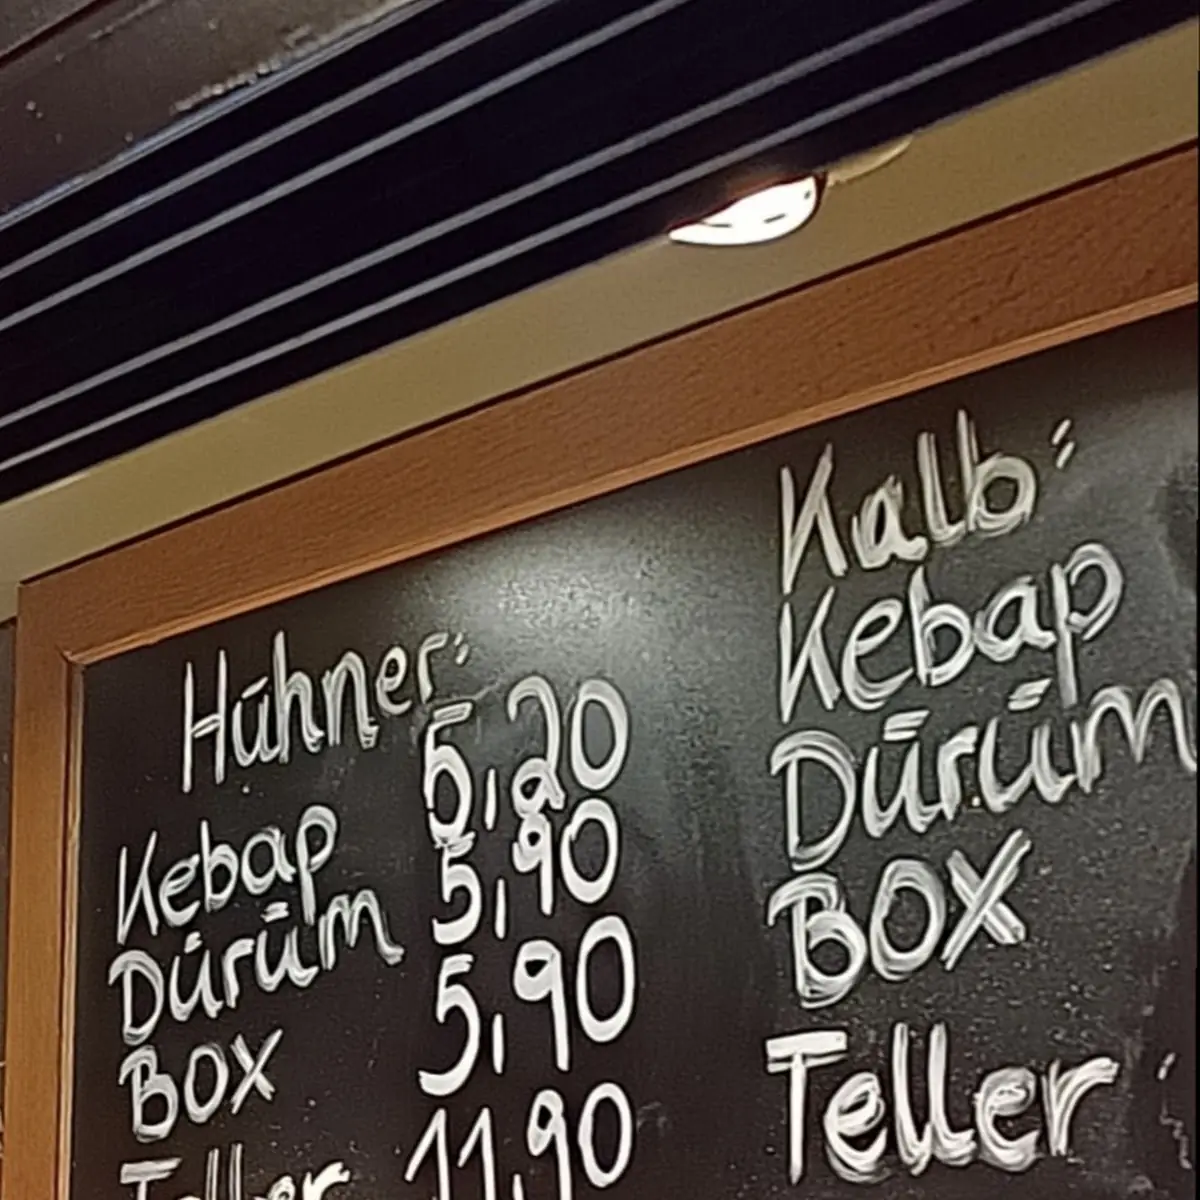 Hühner:
Kebap 5,20
Dürüm 5,90
BOX 5,90
Teller 11,90
Kalb:
Kebap
Dürüm
BOX
Teller